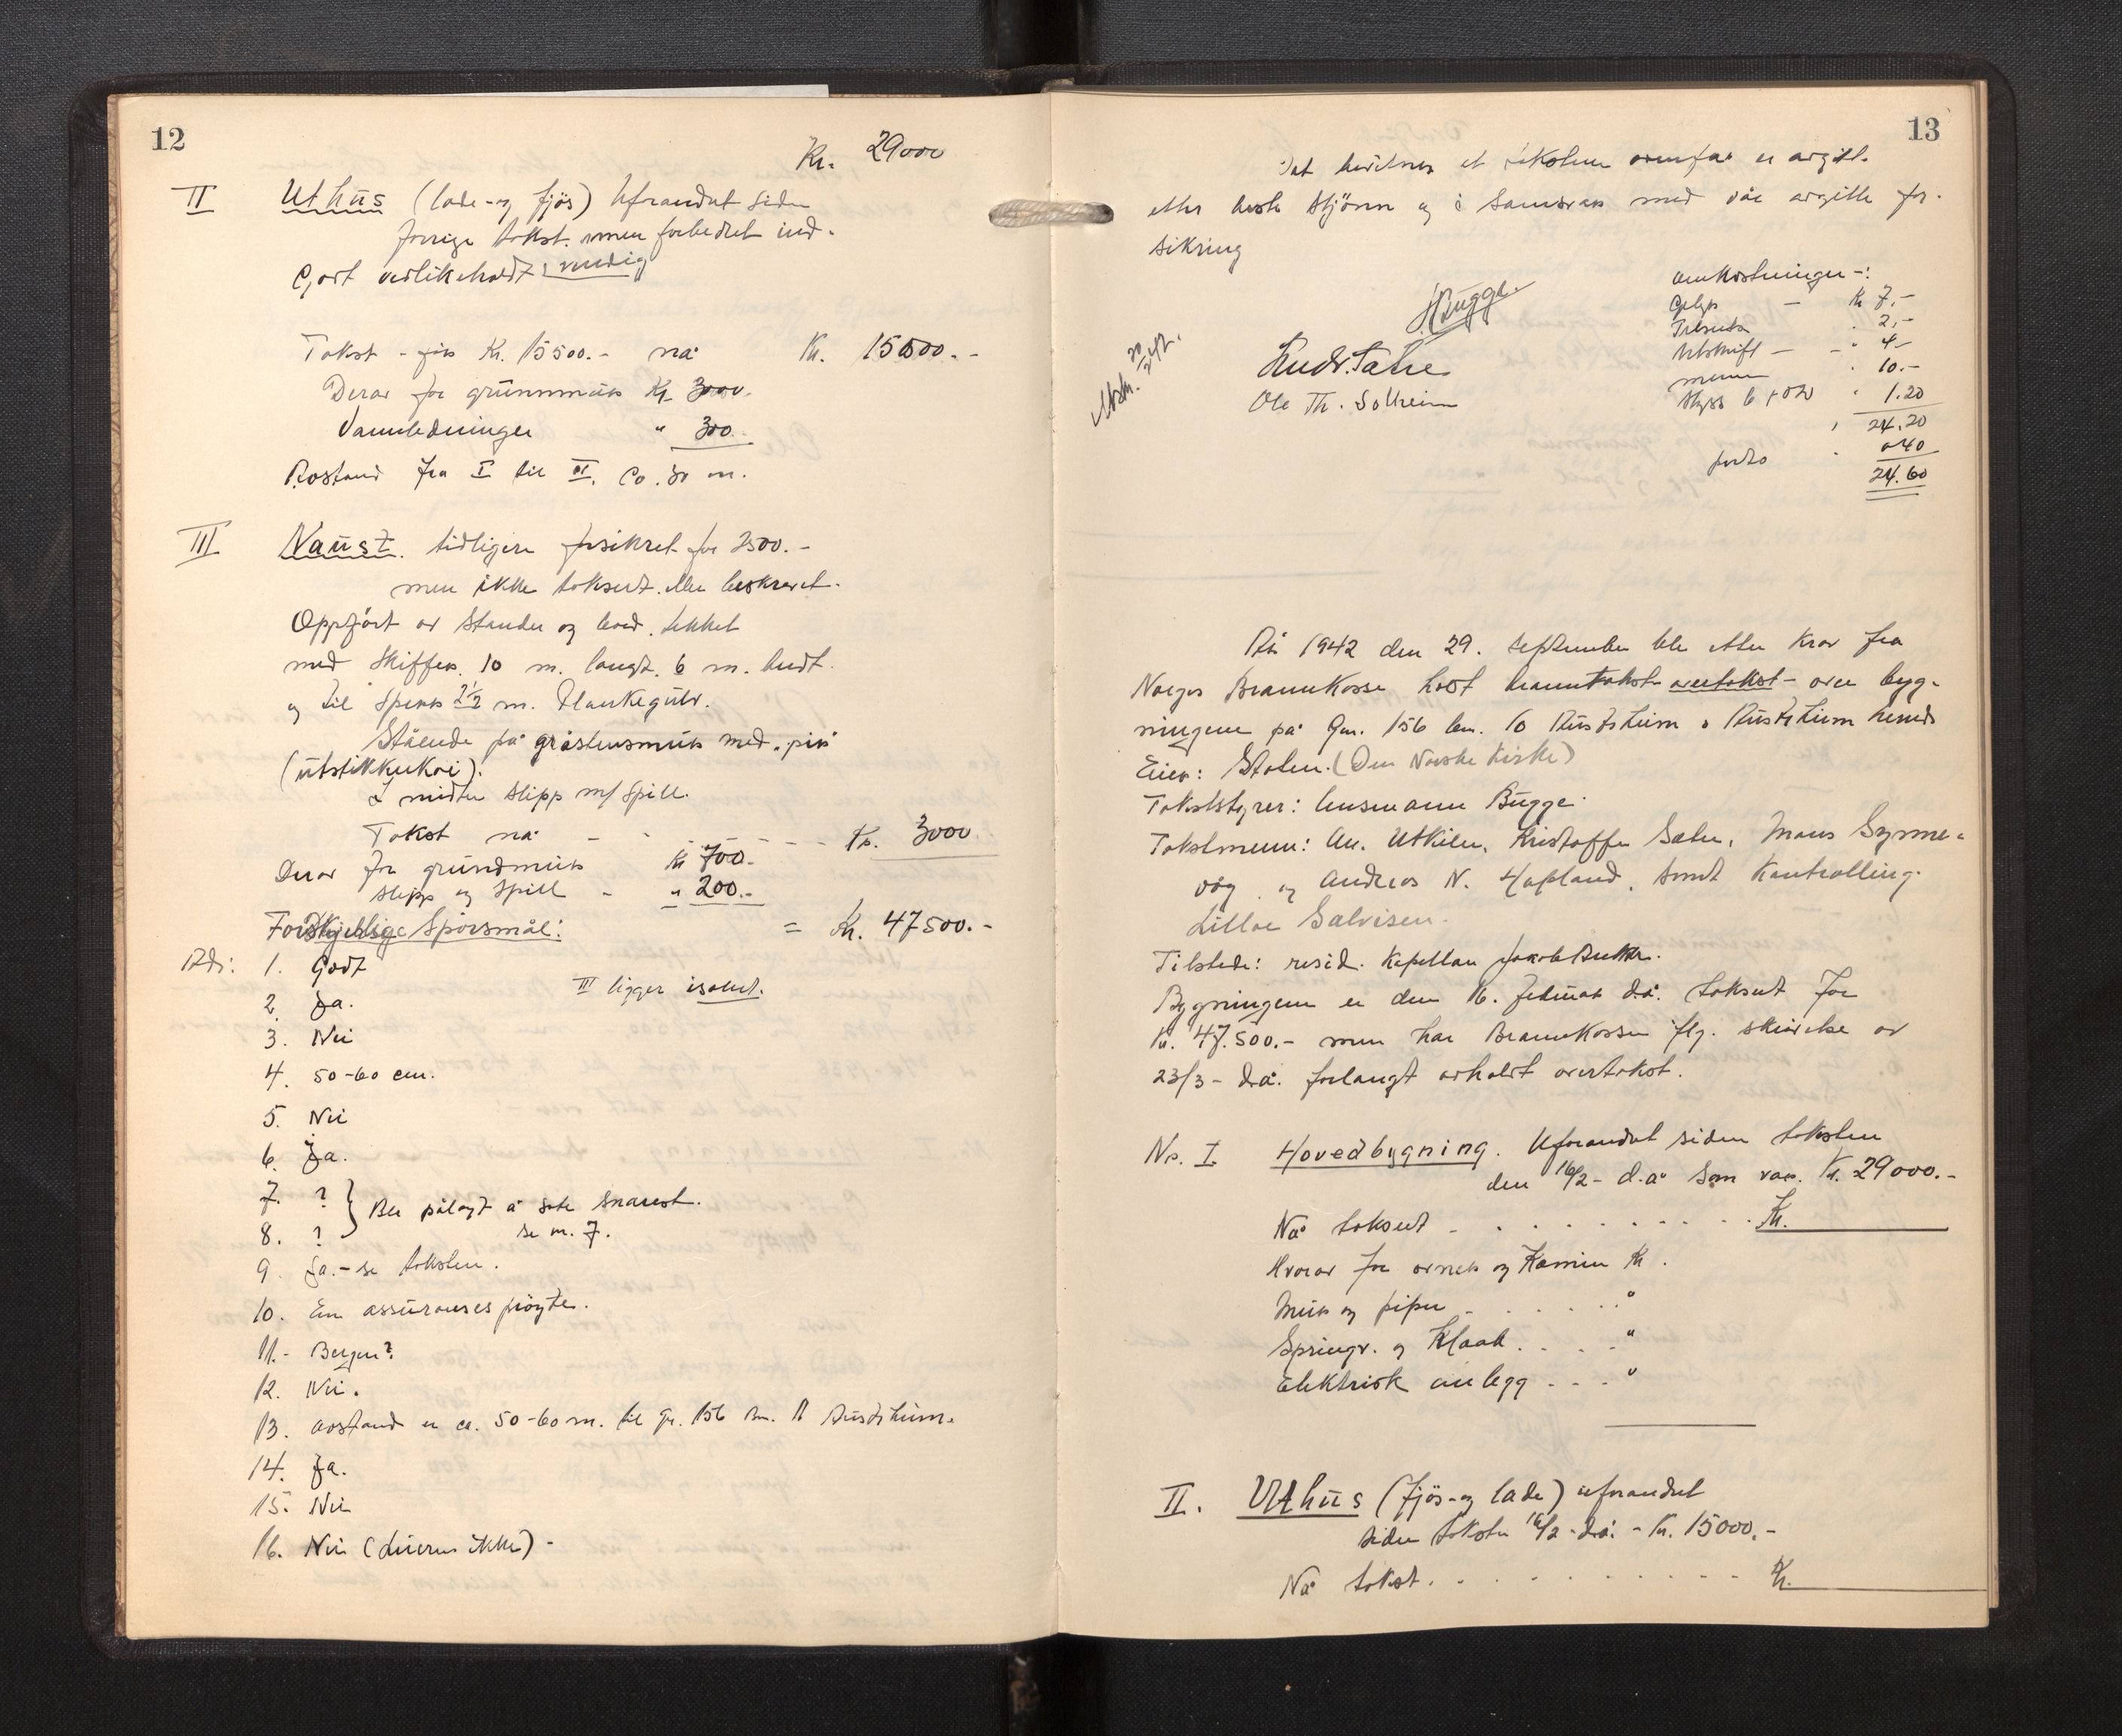 12
Kr. 29000
II Uthus (lade-og fjös) Uforandret siden
forrige takst. men forbedret ind-
Gort vedlikeholdt vendig
Takst - før Kr. 15500.- nå Kr. 15500.-
Derav for grunnmur Kr. 3000.
Vannledninger " 300.-
Avstand fra I til II. Ca. 30 m.
III Naust. tidligere forsikret for 2500.-
men ikke taksert eller beskrevet.
Oppført av stender og bord. tekket
med skiffer. 10 m. langt. 6 m. bredt.
og til sperr 2 1/2 m. Plankegulv.
Stående på gråstensmur med "pir"
(utstikkerkai).
I midten slipp m/ spill.
Takst nå - - - - - Kr. 3000
Derav for grundmur Kr 700.-
slipp og spill - " 200.-
Forskjellige Spørsmål: = Kr. 47500.-
Adr: 1. Godt
III ligger isolert.
2. Ja.
3. Nei
4. 50-60 cm.
5. Nei
6. Ja.
7. ? } Ble pålagt å sote snarest.
8. ? se nr. 7.
9. Ja.- se taksten.
10. En assuranses prøyte.
11.- Bergen?
12. Nei.
13. avstand er ca. 50-60 m. til Gr. 156 Bn. 11 Austrheim.
14. Ja.
15. Nei
16. Nei ( ikke) -
13
Det bevitnes at taksten ovenfor er avgitt
etter beste skjönn og i samsvar med vår avgitte for-
sikring
HBugge.
Ole Th. Solheim
Avskr. 20/2 42.
Omkostninger -:
Gebyr - Kr 7.-
2,-
Utskrift - - " 4-
menn " 10.-
Skyss " 1.20
24.20
porto " 0.40
24.60
År 1942 den 29. september ble etter krav fra
Norges Brannkasse holdt branntakst- overtakst - over byg-
ningene på Gnr. 156 bnr. 10 Austrheim i Austrheim herred
Eier: Staten. (Den Norske Kirke)
Takststyrer: lensmann Bugge.
Takstmenn: An. Utkilen, Kristoffer Sæter, Mons Synne-
våg og Andreas N. Hopland, samt Kontrolling.
Lilloe Salvisen.
Tilstede: resid. Kapellan Jakob
Bygningene er den 16. februar d.å. taksert for
kr. 47.500.- men har Brannkassen iflg. skrivelse av
23/3 - d.å. forlangt avholdt overtakst.
Nr. I Hovedbygning. Uforandret siden taksten
den 16/2 - d.å som var. Kr. 29000.-
Nå taksert - . . . . . . . . . . Kr.
Hvorav for ovner og Kamin Kr.
Mur og piper - . . . . . . "
Springv. og Kloak . . . . "
Elektrisk anlegg - . . . "
II. Uthus (fjös-og lade) uforandret
siden taksten 16/2 - d.å. - Kr. 15000.-
Nå takst. . . . . . . . . . . . . Kr.